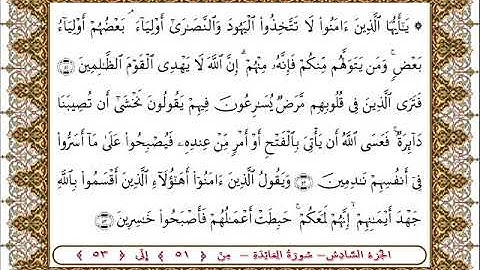 ۞ يَٰٓأَيُّهَا ٱلَّذِينَ ءَامَنُوا۟ لَا تَتَّخِذُوا۟ ٱلْيَهُودَ وَٱلنَّصَٰرَىٰٓ أَوْلِيَآءَ ۘ بَعْضُهُمْ أَوْلِيَآءُ
بَعْضٍ ۚ وَمَن يَتَوَلَّهُم مِّنكُمْ فَإِنَّهُۥ مِنْهُمْ ۗ إِنَّ ٱللَّهَ لَا يَهْدِى ٱلْقَوْمَ ٱلظَّٰلِمِينَ ۝٥١
فَتَرَى ٱلَّذِينَ فِى قُلُوبِهِم مَّرَضٌ يُسَٰرِعُونَ فِيهِمْ يَقُولُونَ نَخْشَىٰٓ أَن تُصِيبَنَا
دَآئِرَةٌ ۚ فَعَسَى ٱللَّهُ أَن يَأْتِىَ بِٱلْفَتْحِ أَوْ أَمْرٍ مِّنْ عِندِهِۦ فَيُصْبِحُوا۟ عَلَىٰ مَآ أَسَرُّوا۟
فِىٓ أَنفُسِهِمْ نَٰدِمِينَ ۝٥٢ وَيَقُولُ ٱلَّذِينَ ءَامَنُوٓا۟ أَهَٰٓؤُلَآءِ ٱلَّذِينَ أَقْسَمُوا۟ بِٱللَّهِ
جَهْدَ أَيْمَٰنِهِمْ ۙ إِنَّهُمْ لَمَعَكُمْ ۚ حَبِطَتْ أَعْمَٰلُهُمْ فَأَصْبَحُوا۟ خَٰسِرِينَ ۝٥٣
الجزء السَّادِسُ - سُورَةُ المَائِدَةِ - مِنْ ﴿ ٥١ ﴾ إِلَى ﴿ ٥٣ ﴾